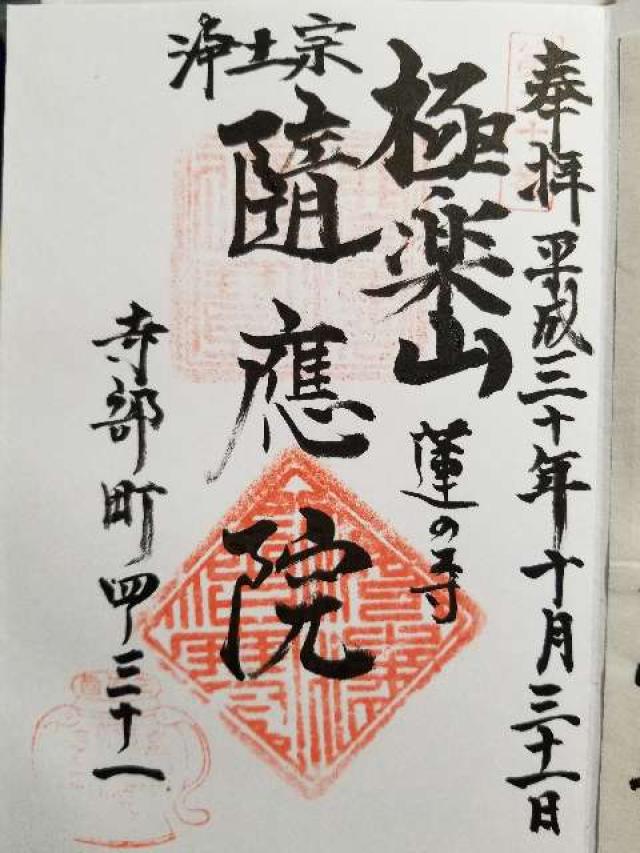 奉拝 平成三十年十月三十一日
極楽山
蓮の寺
浄土宗
隨應院
寺部町四ノ三十一